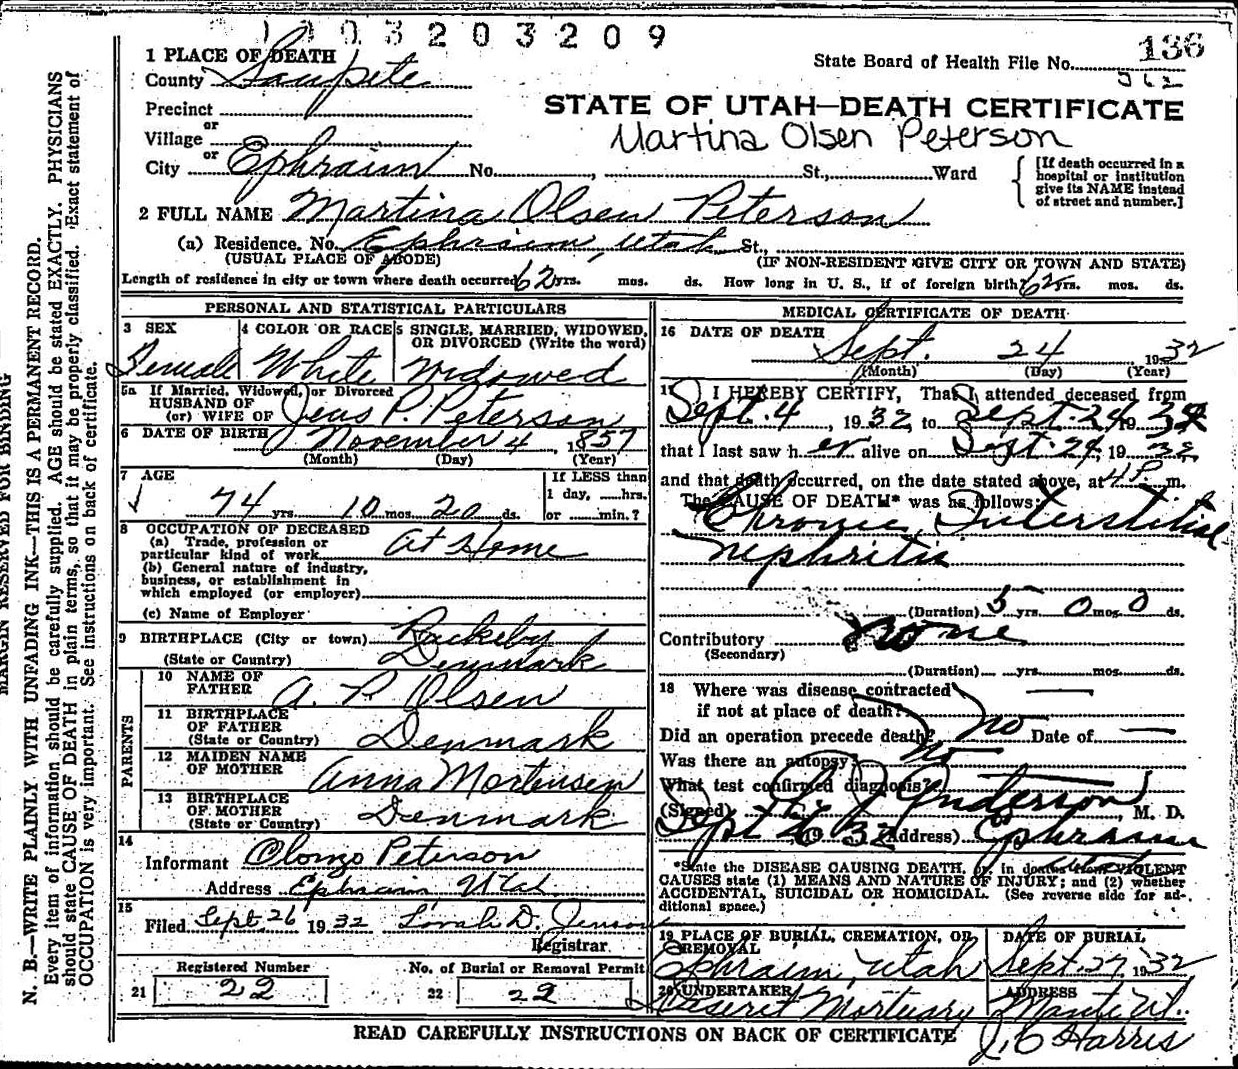 1 1 0 3 2 0 3 2 0 9
136
1 PLACE OF DEATH
State Board of Health File No.
962
County Sanpete
STATE OF UTAH—DEATH CERTIFICATE
Precinct
Martina Olsen Peterson
or
Village
or
City Ephraim No. , St., Ward
[If death occurred in a
hospital or institution
give its NAME instead
of street and number.]
2 FULL NAME Martina Olsen Peterson
(a) Residence. No. Ephraim, Utah St.,
(USUAL PLACE OF ABODE) (IF NON-RESIDENT GIVE CITY OR TOWN AND STATE)
Length of residence in city or town where death occurred 62 yrs. mos. ds. How long in U. S., if of foreign birth? 62 yrs. mos. ds.
PERSONAL AND STATISTICAL PARTICULARS
3 SEX
Female
4 COLOR OR RACE
White
5 SINGLE, MARRIED, WIDOWED,
OR DIVORCED (Write the word)
Widowed
5a If Married, Widowed, or Divorced
HUSBAND OF
(or) WIFE OF Jens P. Peterson
6 DATE OF BIRTH November 4, 1857
(Month) (Day) (Year)
7 AGE
74 yrs 10 mos. 20 ds.
If LESS than
1 day, hrs.
or min.?
8 OCCUPATION OF DECEASED
(a) Trade, profession or
particular kind of work At Home
(b) General nature of industry,
business, or establishment in
which employed (or employer)
(c) Name of Employer
9 BIRTHPLACE (City or town)
(State or Country) Denmark
PARENTS
10 NAME OF
FATHER A. P. Olsen
11 BIRTHPLACE
OF FATHER
(State or Country) Denmark
12 MAIDEN NAME
OF MOTHER Anna Mortensen
13 BIRTHPLACE
OF MOTHER
(State or Country) Denmark
14
Informant Olonzo Peterson
Address Ephraim, Utah
15
Filed Sept. 26 1932 D. Jenson
Registrar
Registered Number
21 22
No. of Burial or Removal Permit
22 22
MEDICAL CERTIFICATE OF DEATH
16 DATE OF DEATH
Sept. 24, 1932
(Month) (Day) (Year)
17 I HEREBY CERTIFY, That I attended deceased from
Sept. 4, 1932, to Sept. 24, 1932
that I last saw her alive on Sept. 24, 1932
and that death occurred, on the date stated above, at 4 P. m.
The CAUSE OF DEATH* was as follows:
Chronic Interstitial
nephritis
(Duration) 5 yrs. 0 mos. 0 ds.
Contributory none
(Secondary)
(Duration) yrs. mos. ds.
18 Where was disease contracted
if not at place of death? —
Did an operation precede death? no Date of —
Was there an autopsy? no
What test confirmed diagnosis?
(Signed) Anderson, M. D.
Sept 1932 (Address) Ephraim
Utah
*State the DISEASE CAUSING DEATH, or, in deaths from VIOLENT
CAUSES state (1) MEANS AND NATURE OF INJURY; and (2) whether
ACCIDENTAL, SUICIDAL OR HOMICIDAL. (See reverse side for ad-
ditional space.)
19 PLACE OF BURIAL, CREMATION, OR
REMOVAL
Ephraim, Utah
DATE OF BURIAL
Sept. 27, 1932
20 UNDERTAKER
Deseret Mortuary
ADDRESS
Manti Ut.
J. C Harris
READ CAREFULLY INSTRUCTIONS ON BACK OF CERTIFICATE
MARGIN RESERVED FOR BINDING
N. B.—WRITE PLAINLY WITH UNFADING INK—THIS IS A PERMANENT RECORD.
Every item of information should be carefully supplied. AGE should be stated EXACTLY. PHYSICIANS
should state CAUSE OF DEATH in plain terms, so that it may be properly classified. Exact statement of
OCCUPATION is very important. See instructions on back of certificate.